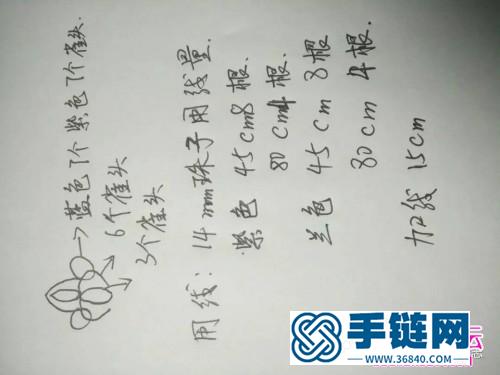 蓝色7个紫色7个雀头.
6个雀头
3个雀头
用线: 14mm珠子用线量.
紫色 45cm8根.
80cm4根.
兰色 45cm 8根
80cm 4根.
加线 15cm
手链网
www.36840.com